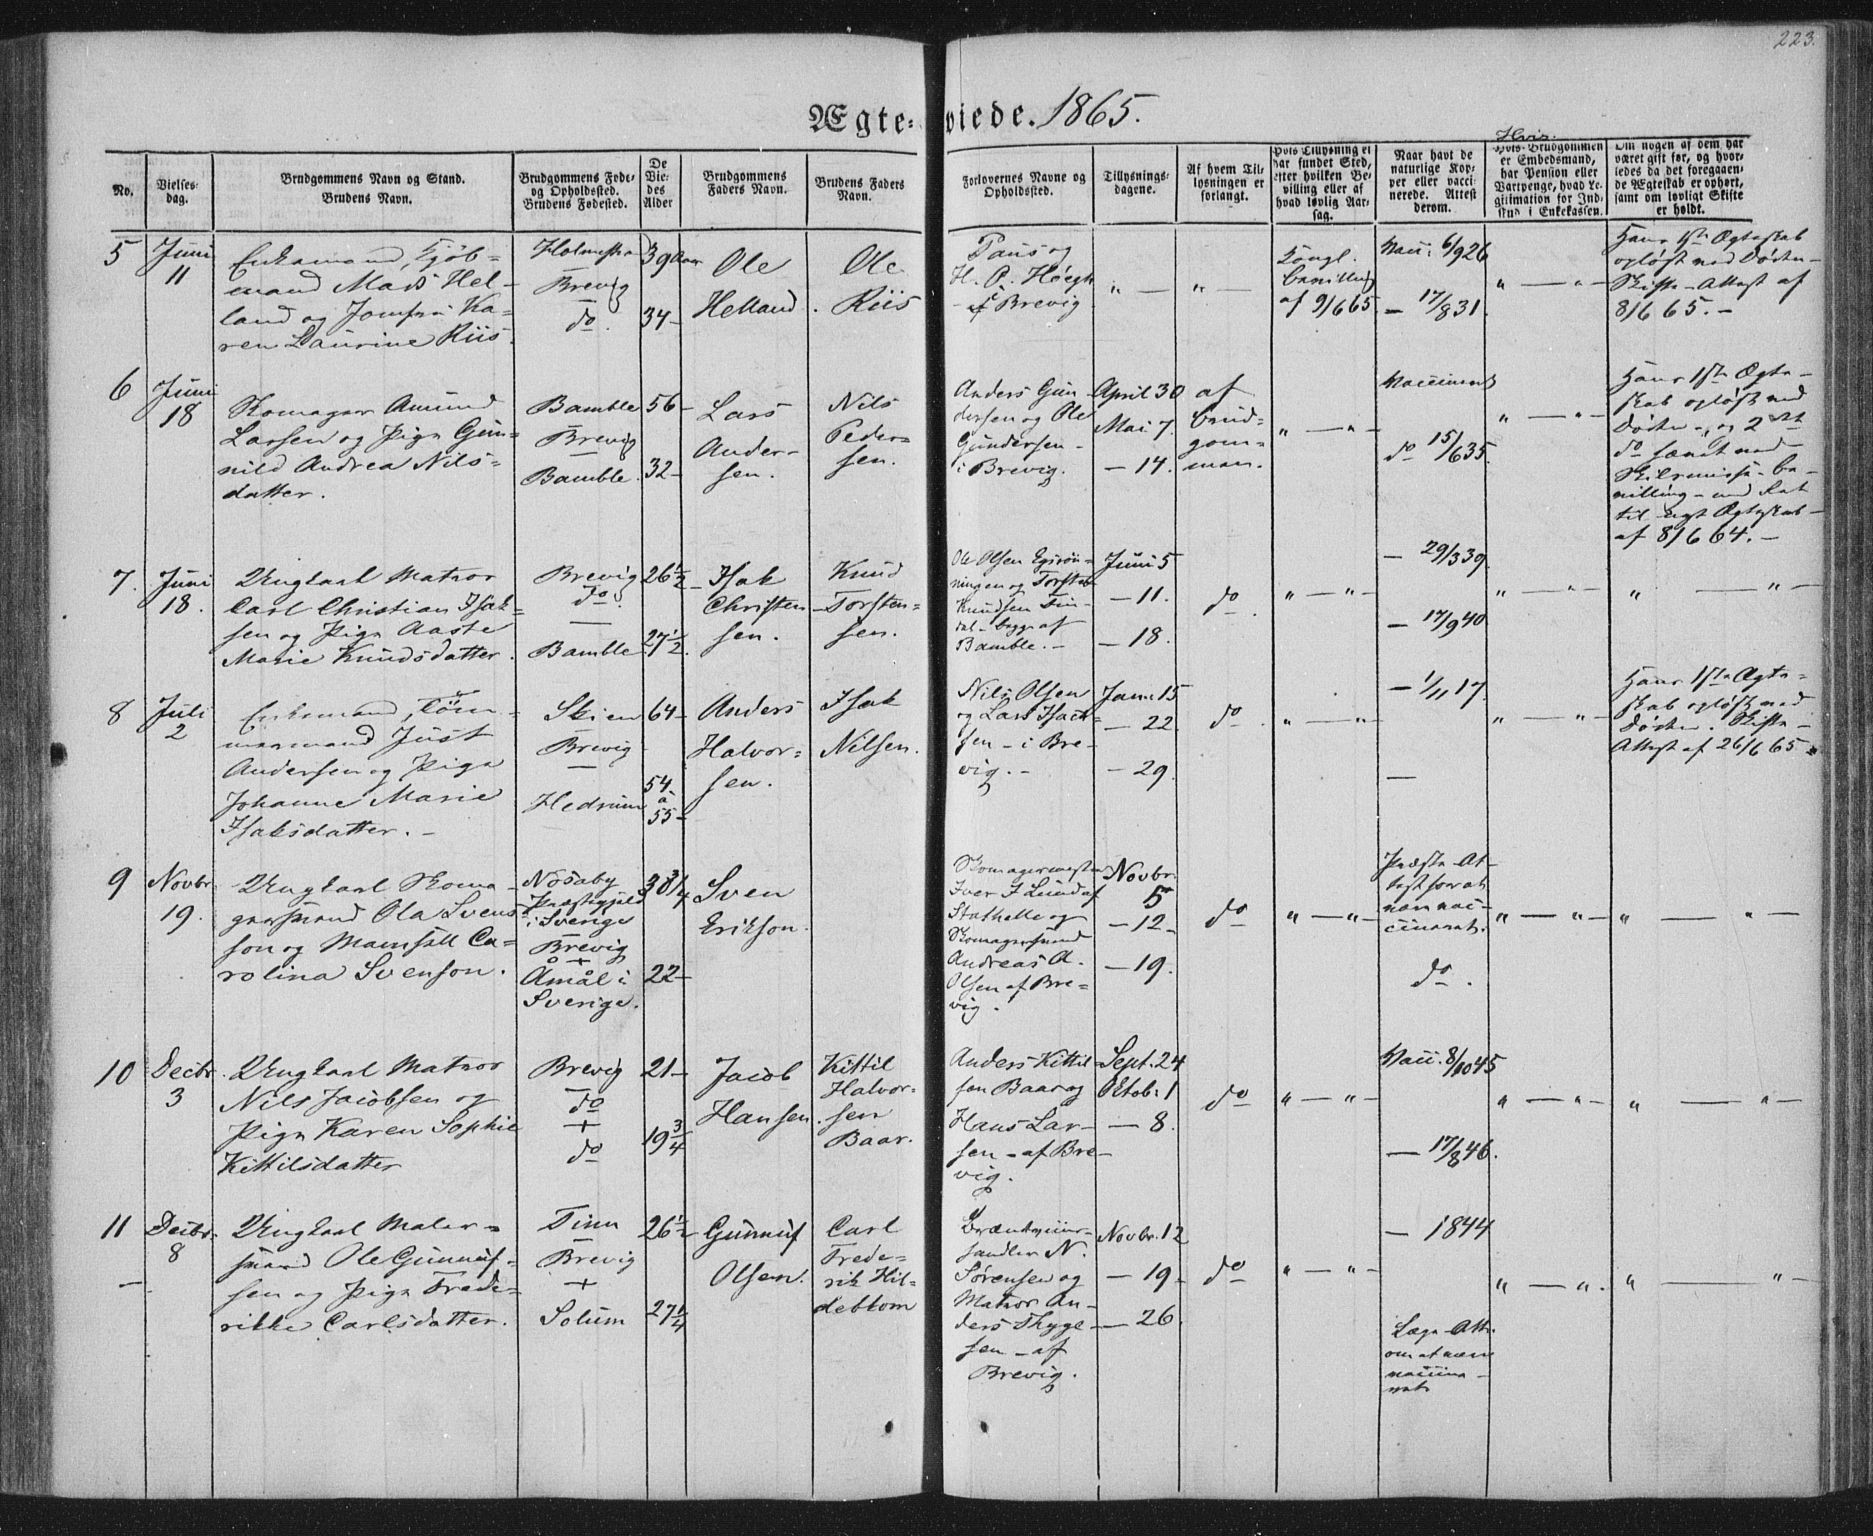 223.
Ægte-viede. 1865.
No.
Vielses-
dag.
Brudgommens Navn og Stand.
Brudens Navn.
Brudgommens Føde-
og Opholdssted.
Brudens Fødested.
De
Vie-
des
Alder
Brudgommens
Faders Navn.
Brudens Faders
Navn.
Forlovernes Navne og
Opholdssted.
Tillysnings-
dagene.
Af hvem Til-
lysningen er
forlangt.
Hvis Tillysning ei
har fundet Sted,
efter hvilken Be-
villing eller af
hvad lovlig Aar-
sag.
Naar havt de
naturlige Kop-
per eller vacci-
nerede. Attest
derom.
Hvis
Hvis Brudgommen
er Embedsmand,
har Pension eller
Vartpenge, hvad Le-
gitimation for Ind-
skud i Enkekassen.
Om nogen af dem har
været gift før, og hvor-
ledes da det foregaaen-
de Ægteskab er ophørt,
samt om lovligt Skifte
er holdt.
5
Juni
11
Enkemand, Kjøb-
mand Mads Hel-
land og Jomfru Ka-
ren Laurine Riis.
Holmestra
Brevig
do.
39 Aar
34-
Ole
Helland.
Ole
Riis
Paus og
H. P. Høegh
- af Brevig
" — " —
Kongl.
bevilling
af 9/6 65.
Vacc: 6/9 26
— 17/8 31.
" — " -
Hans 1ste Ægteskab
opløst ved Døden -
Skifte-Attest af
8/6 65. —
6
Juni
18
Skomager Amund
Larsen og Pige Gun-
nild Andrea Nils-
datter.
Bamble
Brevig
—
Bamble.
56-
32-
Lars
Ander-
sen.
Nils
Peder-
sen.
Anders Gun
dersen og Ole
Gundersen -
i Brevig.
April 30
Mai 7.
— 14.
af
brud-
gom-
men.
" — " -
Vaccineret
do 15/6 35.
" — " -
Hans 1ste Ægte-
skab opløst ved
Døden -, og 2det
do hævet ved
Skilsmisse be-
villing - med Ret
til nyt Ægteskab -
af 8/6 64. —
7.
Juni
18.
Ungkarl Matros
Carl Christian Isak-
sen og Pige Aaste
Marie Knudsdatter.
Brevig
do.
—
Bamble.
26 1/2
27 1/2.
Isak
Christen-
sen.
Knud
Torsten-
sen.
Ole Olsen
ningen og Torsten
Knudsen
dal - begge af
Bamble. —
Juni 5
— 11.
— 18.
do
" — " -
— 29/3 39.
— 17/9 40.
" — " -
" — " -
8
Juli
2
Enkemand, Tøm-
mermand Just
Andersen og Pige
Johanne Marie
Isaksdatter. —
Skien
Brevig
—
Hedrum
64-
54
a
55-
Anders
Halvor-
sen.
Isak
Nilsen.
Nils Olsen
og Lars Isak-
sen - i Bre-
vig. —
Jan: 15
— 22.
— 29.
do.
" — " -
— 1/11 17.
—
" — " -
Hans 1ste Ægte-
skab opløst ved
Døden. Skifte-
Attest af 26/6 65.
9
Novbr.
19.
Ungkarl Skoma-
gersvend Ola Svens
son og Mamsell Ca-
rolina Svenson.
Nosaby
Præstegjeld
i Sverige
Brevig
+
Åmål i
Sverige.
38 3/4
22-
Sven
Erikson.
Skomagermester
Iver J Lund af
Stathelle og
Skomagersvend
Andreas A.
Olsen af Bre-
vig.
Novbr:
5
— 12.
— 19.
do
" — " -
Præste-At-
test for at
være vac-
cineret.
do.
" — " -
" — " -
10
Decbr.
3
Ungkarl Matros
Nils Jacobsen og
Pige Karen Sophie
Kittilsdatter
Brevig
do
+
do
21-
19 3/4
Jacob
Hansen.
Kittil
Halvor-
sen
Baar.
Anders Kittil-
sen Baar og
Hans Lar-
sen - af Bre-
vig.
Sept. 24
Octob: 1
— 8.
do
" — " -
Vacc. 8/10 45
— 17/8 46.
" — " -
" — " -
11
—
Decbr.
8
Ungkarl Maler-
svend Ole Gunnuf-
sen og Pige Frede-
rikke Carlsdatter.
Tinn
Brevig
+
Solum
26 1/2
27 1/4
Gunnuf
Olsen.
Carl
Frede-
rik Hil-
debtom
Brændeviins-
handler N.
Sørensen og
Matros An-
ders Thyge-
sen - af
Brevig.
Novbr. 12
— 19.
— 26.
do
" — " -
— 1844
Læge-Att.
om at være
vaccine-
ret.
" — " -
" — " -